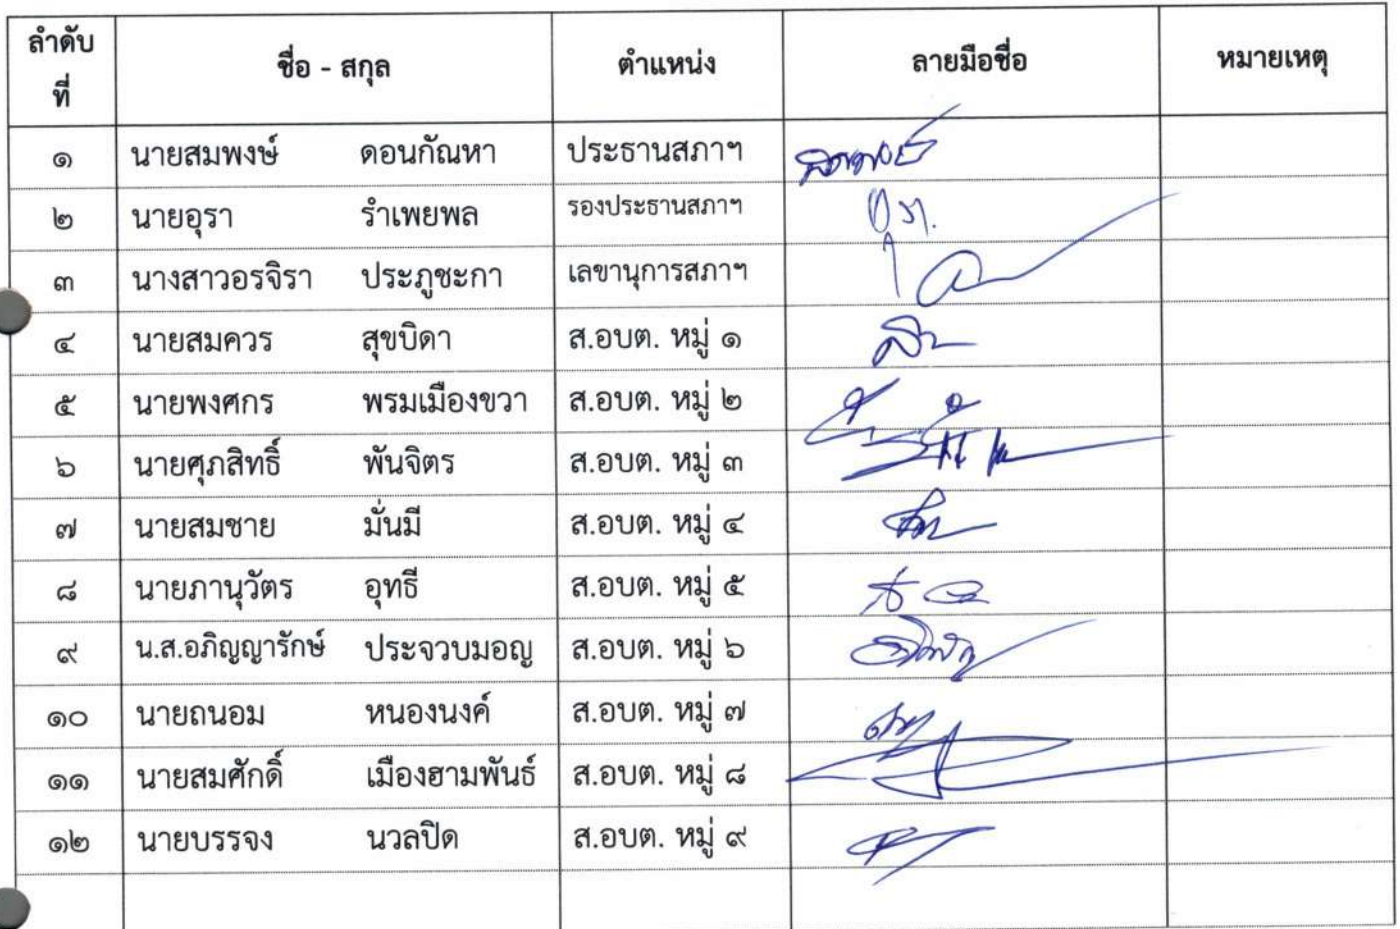 ลำดับที่ ชื่อ - สกุล ตำแหน่ง ลายมือชื่อ หมายเหตุ
๑ นายสมพงษ์ ดอนกัณหา ประธานสภาฯ
๒ นายอุรา รำเพยพล รองประธานสภาฯ
๓ นางสาวอรจิรา ประภูชะกา เลขานุการสภาฯ
๔ นายสมควร สุขบิดา ส.อบต. หมู่ ๑
๕ นายพงศกร พรมเมืองขวา ส.อบต. หมู่ ๒
๖ นายศุภสิทธิ์ พันจิตร ส.อบต. หมู่ ๓
๗ นายสมชาย มั่นมี ส.อบต. หมู่ ๔
๘ นายภานุวัตร อุทธี ส.อบต. หมู่ ๕
๙ น.ส.อภิญญารักษ์ ประจวบมอญ ส.อบต. หมู่ ๖
๑๐ นายถนอม หนองนงค์ ส.อบต. หมู่ ๗
๑๑ นายสมศักดิ์ เมืองฮามพันธ์ ส.อบต. หมู่ ๘
๑๒ นายบรรจง นวลปิด ส.อบต. หมู่ ๙